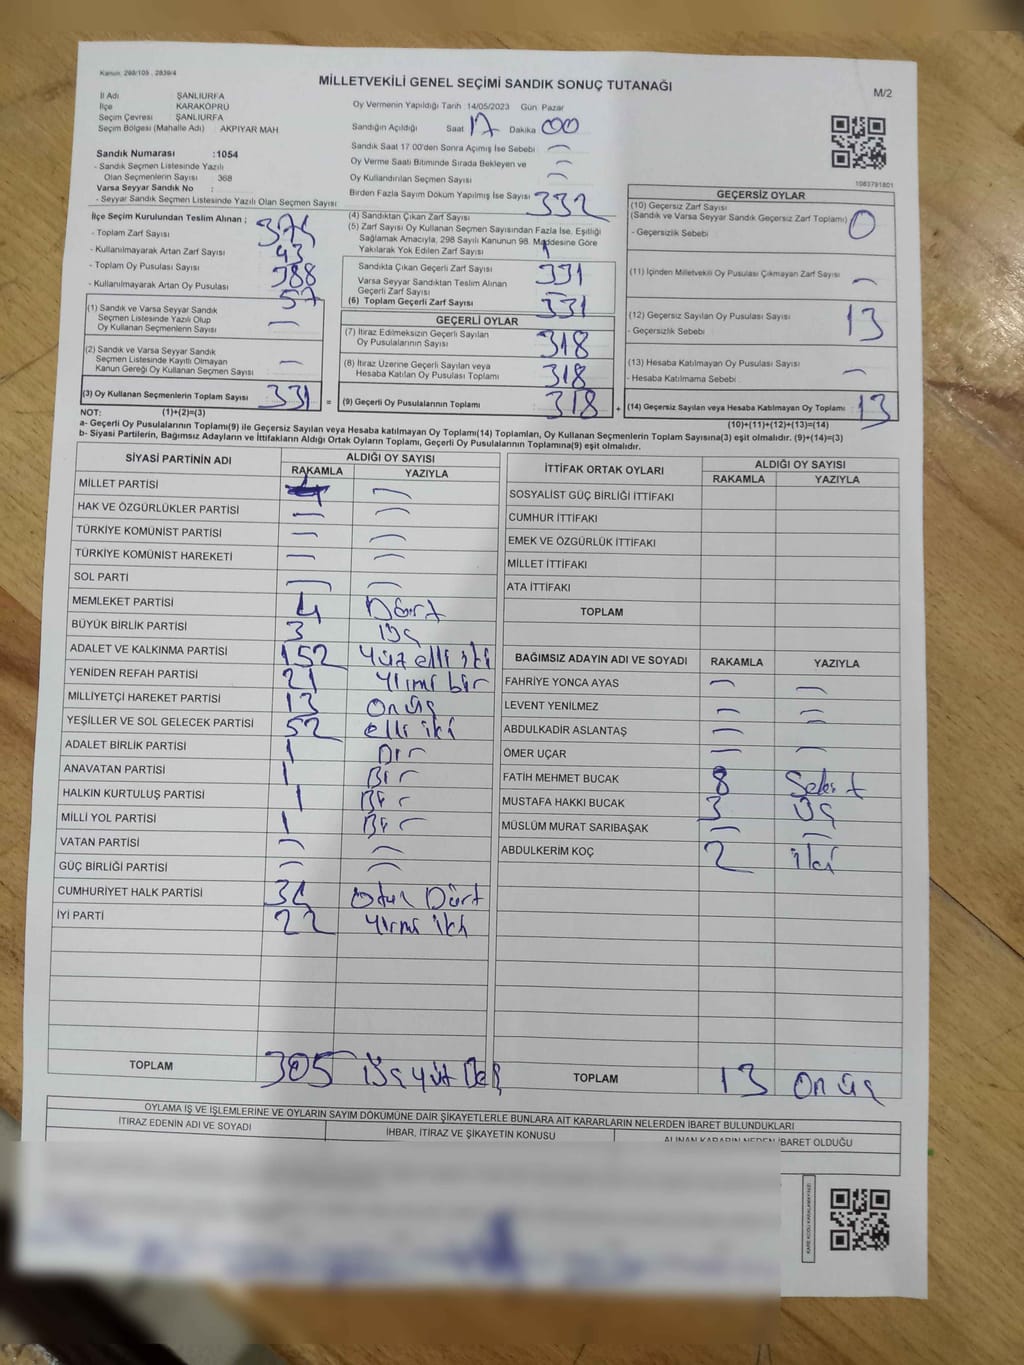 Kanun: 298/105 , 2839/4
MİLLETVEKİLİ GENEL SEÇİMİ SANDIK SONUÇ TUTANAĞI
M/2
İl Adı : ŞANLIURFA
İlçe : KARAKÖPRÜ
Seçim Çevresi : ŞANLIURFA
Seçim Bölgesi (Mahalle Adı) : AKPIYAR MAH
Sandık Numarası : 1054
- Sandık Seçmen Listesinde Yazılı
Olan Seçmenlerin Sayısı : 368
Varsa Seyyar Sandık No :
- Seyyar Sandık Seçmen Listesinde Yazılı Olan Seçmen Sayısı :
Oy Vermenin Yapıldığı Tarih :14/05/2023 Gün: Pazar
Sandığın Açıldığı Saat 17 Dakika 00
Sandık Saat 17:00'den Sonra Açımış İse Sebebi —
Oy Verme Saati Bitiminde Sırada Bekleyen ve
Oy Kullandırılan Seçmen Sayısı —
Birden Fazla Sayım Döküm Yapılmış İse Sayısı
1083791801
İlçe Seçim Kurulundan Teslim Alınan ;
- Toplam Zarf Sayısı
- Kullanılmayarak Artan Zarf Sayısı : 43
- Toplam Oy Pusulası Sayısı : 388
- Kullanılmayarak Artan Oy Pusulası : 57
(1) Sandık ve Varsa Seyyar Sandık
Seçmen Listesinde Yazılı Olup
Oy Kullanan Seçmenlerin Sayısı : —
(2) Sandık ve Varsa Seyyar Sandık
Seçmen Listesinde Kayıtlı Olmayan
Kanun Gereği Oy Kullanan Seçmen Sayısı : —
(3) Oy Kullanan Seçmenlerin Toplam Sayısı : 331 =
(4) Sandıktan Çıkan Zarf Sayısı : 332
(5) Zarf Sayısı Oy Kullanan Seçmen Sayısından Fazla İse, Eşitliği
Sağlamak Amacıyla, 298 Sayılı Kanunun 98. Maddesine Göre
Yakılarak Yok Edilen Zarf Sayısı : 1
Sandıkta Çıkan Geçerli Zarf Sayısı : 331
Varsa Seyyar Sandıktan Teslim Alınan
Geçerli Zarf Sayısı
(6) Toplam Geçerli Zarf Sayısı : 331
GEÇERLİ OYLAR
(7) İtiraz Edilmeksizin Geçerli Sayılan
Oy Pusulalarının Sayısı : 318
(8) İtiraz Üzerine Geçerli Sayılan veya
Hesaba Katılan Oy Pusulası Toplamı : 318
(9) Geçerli Oy Pusulalarının Toplamı : 318 +
GEÇERSİZ OYLAR
(10) Geçersiz Zarf Sayısı
(Sandık ve Varsa Seyyar Sandık Geçersiz Zarf Toplamı) : 0
- Geçersizlik Sebebi :
(11) İçinden Milletvekili Oy Pusulası Çıkmayan Zarf Sayısı : —
(12) Geçersiz Sayılan Oy Pusulası Sayısı : 13
- Geçersizlik Sebebi :
(13) Hesaba Katılmayan Oy Pusulası Sayısı : —
- Hesaba Katılmama Sebebi :
(14) Geçersiz Sayılan veya Hesaba Katılmayan Oy Toplamı : 13
NOT: (1)+(2)=(3)
(10)+(11)+(12)+(13)=(14)
a- Geçerli Oy Pusulalarının Toplamı(9) ile Geçersiz Sayılan veya Hesaba Katılmayan Oy Toplamı(14) Toplamları, Oy Kullanan Seçmenlerin Toplam Sayısına(3) eşit olmalıdır. (9)+(14)=(3)
b- Siyasi Partilerin, Bağımsız Adayların ve İttifakların Aldığı Ortak Oyların Toplamı, Geçerli Oy Pusulalarının Toplamına(9) eşit olmalıdır.
SİYASİ PARTİNİN ADI ALDIĞI OY SAYISI
RAKAMLA YAZIYLA
MİLLET PARTİSİ —
HAK VE ÖZGÜRLÜKLER PARTİSİ — —
TÜRKİYE KOMÜNİST PARTİSİ — —
TÜRKİYE KOMÜNİST HAREKETİ — —
SOL PARTİ — —
MEMLEKET PARTİSİ 4 Dört
BÜYÜK BİRLİK PARTİSİ 3 Üç
ADALET VE KALKINMA PARTİSİ 152 Yüz elli iki
YENİDEN REFAH PARTİSİ 21 Yirmi bir
MİLLİYETÇİ HAREKET PARTİSİ 13 Onüç
YEŞİLLER VE SOL GELECEK PARTİSİ 52 elli iki
ADALET BİRLİK PARTİSİ 1 Bir
ANAVATAN PARTİSİ 1 Bir
HALKIN KURTULUŞ PARTİSİ 1 Bir
MİLLİ YOL PARTİSİ 1 Bir
VATAN PARTİSİ — —
GÜÇ BİRLİĞİ PARTİSİ — —
CUMHURİYET HALK PARTİSİ 34 Otuz Dört
İYİ PARTİ 22 Yirmi iki
TOPLAM 305 Üç yüz Beş
İTTİFAK ORTAK OYLARI ALDIĞI OY SAYISI
RAKAMLA YAZIYLA
SOSYALİST GÜÇ BİRLİĞİ İTTİFAKI
CUMHUR İTTİFAKI
EMEK VE ÖZGÜRLÜK İTTİFAKI
MİLLET İTTİFAKI
ATA İTTİFAKI
TOPLAM
BAĞIMSIZ ADAYIN ADI VE SOYADI RAKAMLA YAZIYLA
FAHRİYE YONCA AYAS — —
LEVENT YENİLMEZ — —
ABDULKADİR ASLANTAŞ — —
ÖMER UÇAR — —
FATİH MEHMET BUCAK 8 Sekiz
MUSTAFA HAKKI BUCAK 3 Üç
MÜSLÜM MURAT SARIBAŞAK — —
ABDULKERİM KOÇ 2 iki
TOPLAM 13 Onüç
OYLAMA İŞ VE İŞLEMLERİNE VE OYLARIN SAYIM DÖKÜMÜNE DAİR ŞİKAYETLERLE BUNLARA AİT KARARLARIN NELERDEN İBARET BULUNDUKLARI
İTİRAZ EDENİN ADI VE SOYADI İHBAR, İTİRAZ VE ŞİKAYETİN KONUSU ALINAN KARARIN NEDEN İBARET OLDUĞU